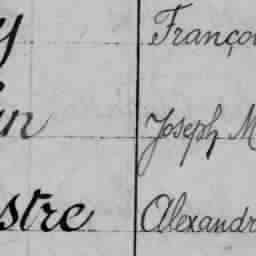 y Françoi
in Joseph M
stre Alexandr